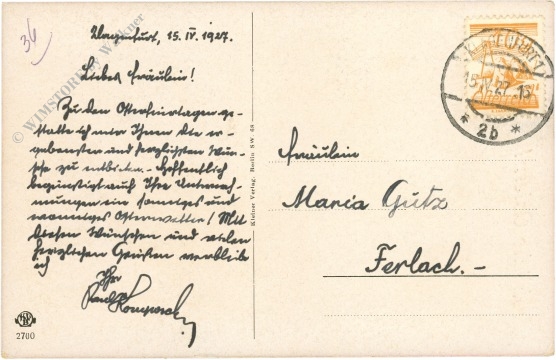 36
Klagenfurt, 15. IV. 1927.
Liebes Fräulein!
Zu den Osterfeiertagen ge-
statte ich mir Ihnen die er-
gebensten und herzlichsten Wün-
sche zu entbieten. Hoffentlich
begünstigt auch Ihre Unterneh-
mungen ein sonniges und
warmes Osterwetter! Mit
besten Wünschen und vielen
herzlichen Grüßen verbleibe
ich
Ihr
Paul
© WIMSTORE.
Kleiner Verlag, Berlin S.W. 68
2700
15. IV. 27
* 2b *
Fräulein
Maria Gutz
Ferlach.-